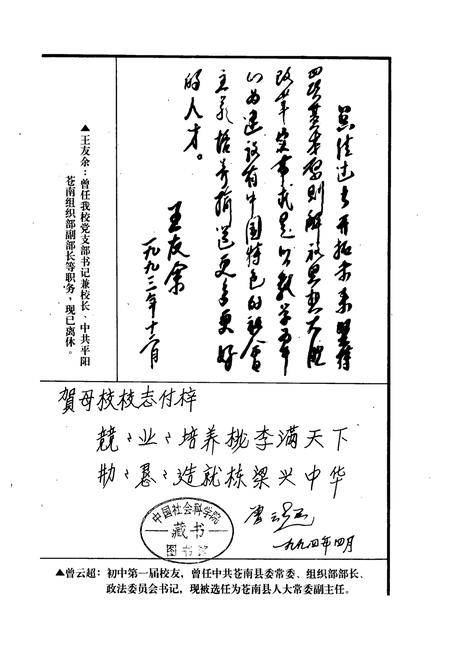 总结过去开拓未来坚持
四项基本原则解放思想大胆
改革实事求是以教学为中
心为建设有中国特色的社会
主义培养输送更多更好
的人才。
王友余
一九九三年十二月
▲王友余：曾任我校党支部书记兼校长、中共平阳
苍南组织部副部长等职务，现已离休。
賀母校校志付梓
兢々业々培养桃李满天下
勤々恳々造就栋梁兴中华
曾云超
一九九四年四月
中国社会科学院
藏书
图书馆
▲曾云超：初中第一届校友，曾任中共苍南县委常委、组织部部长、
政法委员会书记，现被选任为苍南县人大常委副主任。